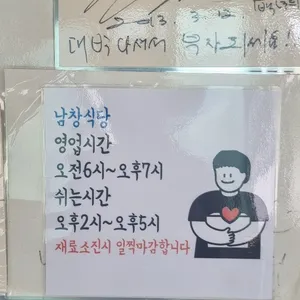 2013. 3. 12
대박나셔서 부자되세요!
남창식당
영업시간
오전6시~오후7시
쉬는시간
오후2시~오후5시
재료소진시 일찍마감합니다